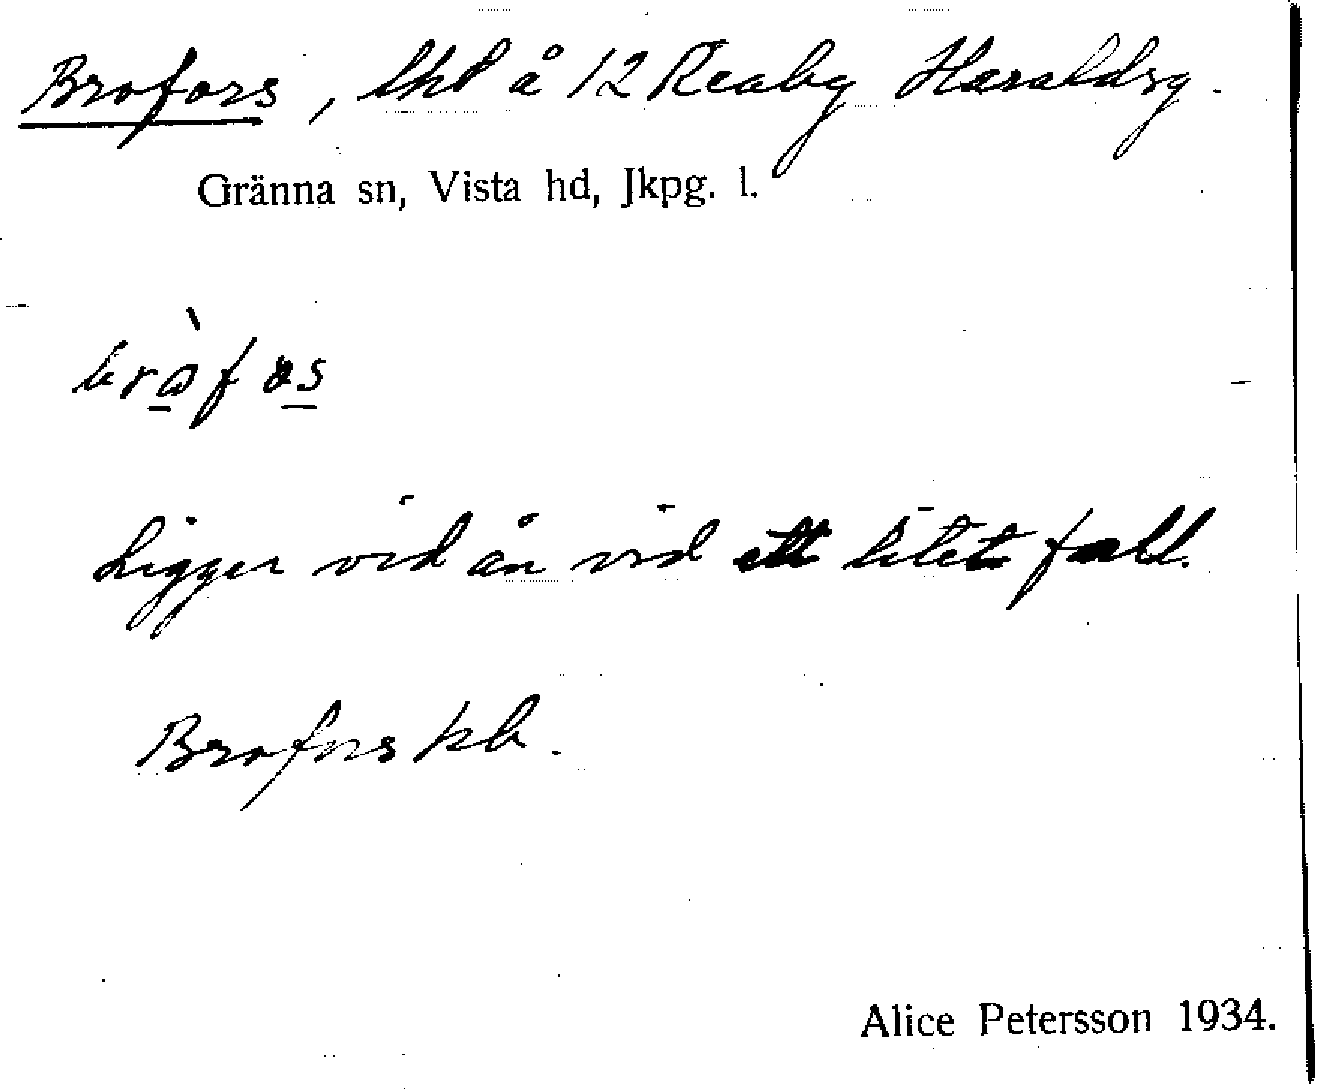 Brofors, lht å 12 Reaby Haraldsg.
Gränna sn, Vista hd, Jkpg. l.
bròfos
Ligger vid ån vid ett litet fall.
Brofors kb.
Alice Petersson 1934.